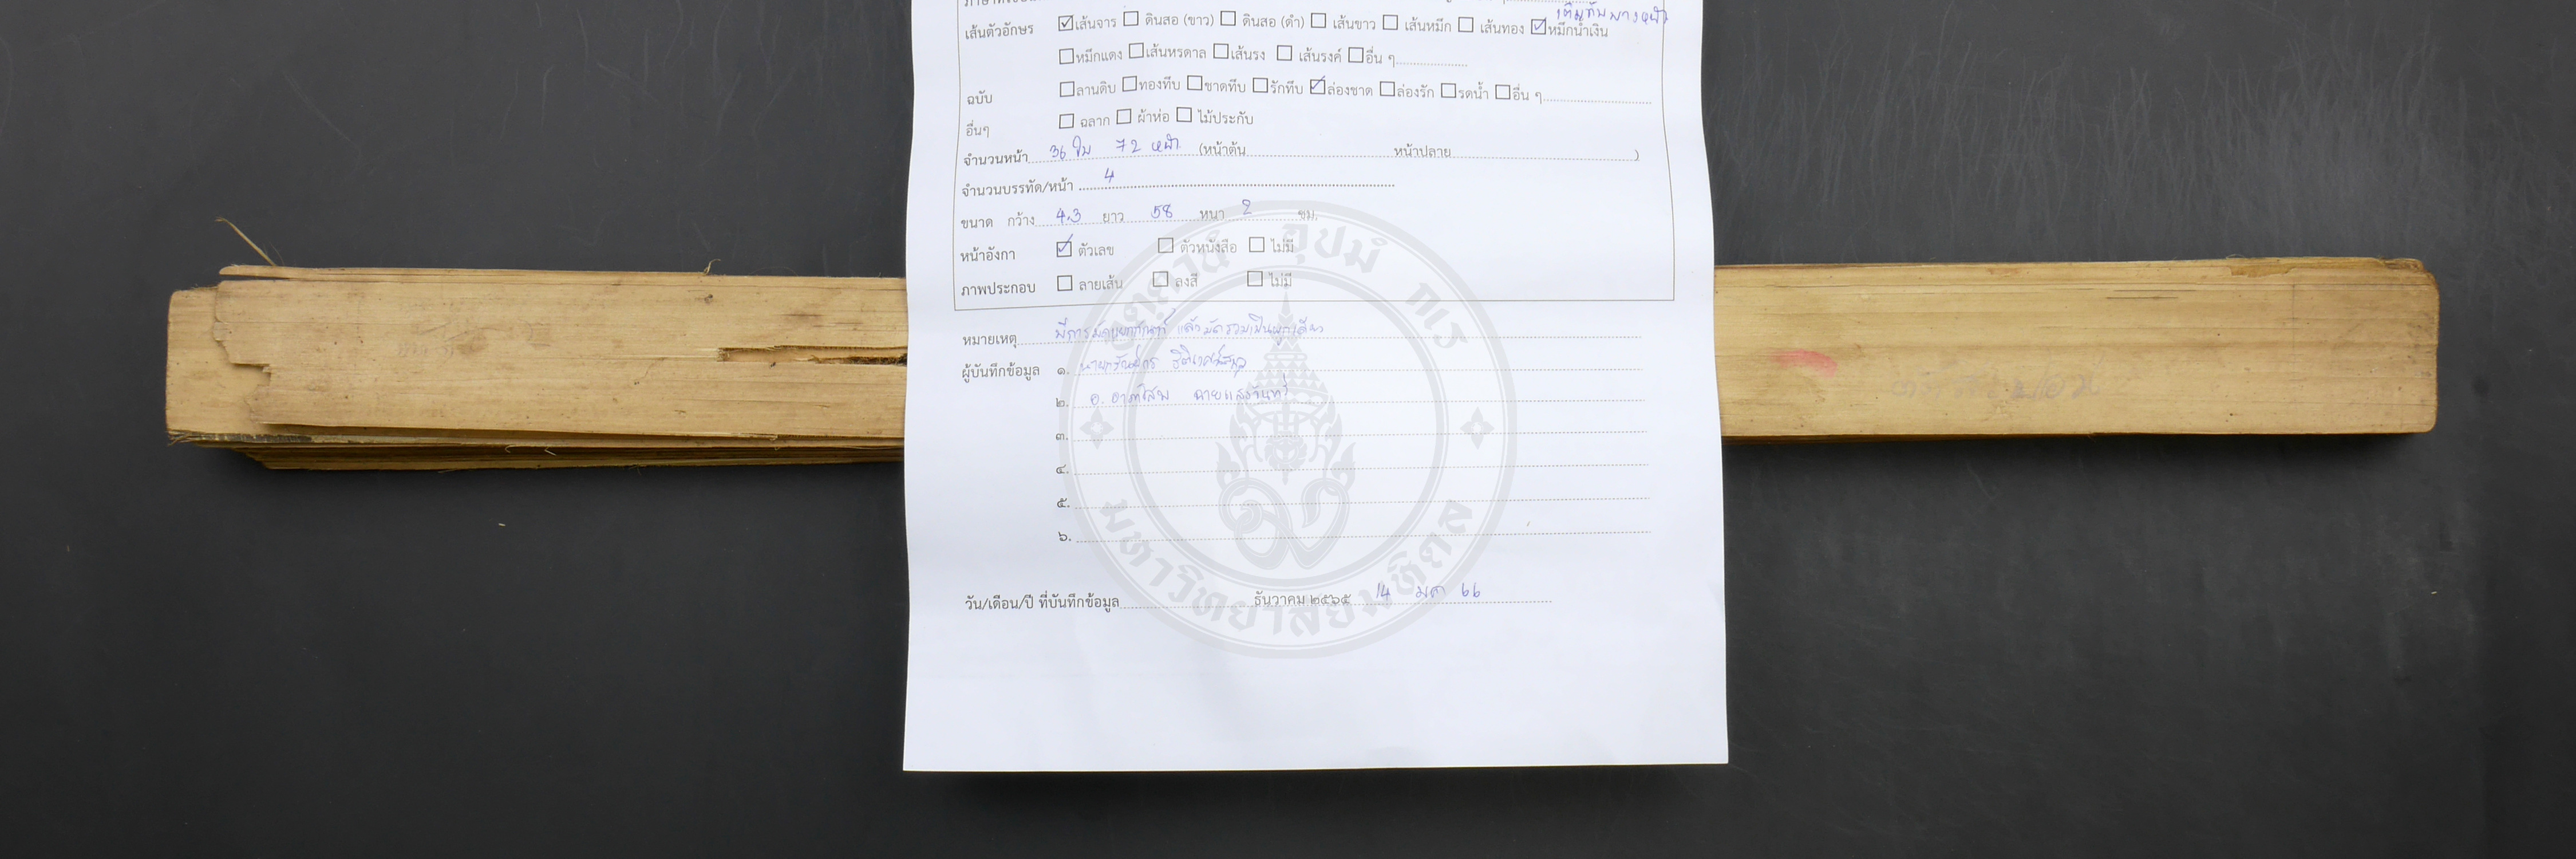 เส้นตัวอักษร ☑เส้นจาร ☐ ดินสอ (ขาว) ☐ ดินสอ (ดำ) ☐ เส้นขาว ☐ เส้นหมึก ☐ เส้นทอง ☑หมึกน้ำเงิน
☐หมึกแดง ☐เส้นหรดาล ☐เส้นรง ☐ เส้นรงค์ ☐อื่น ๆ
ฉบับ ☐ลานดิบ ☐ทองทึบ ☐ชาดทึบ ☐รักทึบ ☑ล่องชาด ☐ล่องรัก ☐รดน้ำ ☐อื่น ๆ
อื่นๆ ☐ ฉลาก ☐ ผ้าห่อ ☐ ไม้ประกับ
จำนวนหน้า 36 ใบ 72 หน้า (หน้าต้น หน้าปลาย )
จำนวนบรรทัด/หน้า 4
ขนาด กว้าง 4.3 ยาว 58 หนา 2 ซม.
หน้าอังกา ☑ ตัวเลข ☐ ตัวหนังสือ ☐ ไม่มี
ภาพประกอบ ☐ ลายเส้น ☐ ลงสี ☐ ไม่มี
หมายเหตุ แล้วมัดรวมเป็นผูกเดียว
ผู้บันทึกข้อมูล ๑.
๒. อ. อาภาโสม ฉายแสงจันทร์
๓.
๔.
๕.
๖.
วัน/เดือน/ปี ที่บันทึกข้อมูล ธันวาคม ๒๕๖๕ 14 มค 66
มหาวิทยาลัยมหิดล